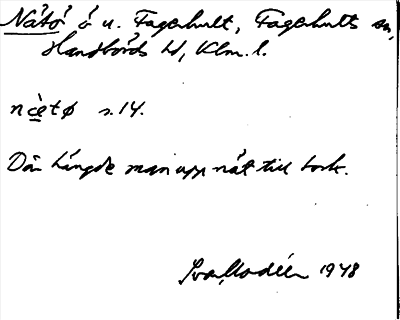 Nätö ö u. Fagerhult, Fagerhults sn,
Handbörds hd, Klm. l.
nὲtø s. 14.
Där hängde man upp nät till tork.
1948